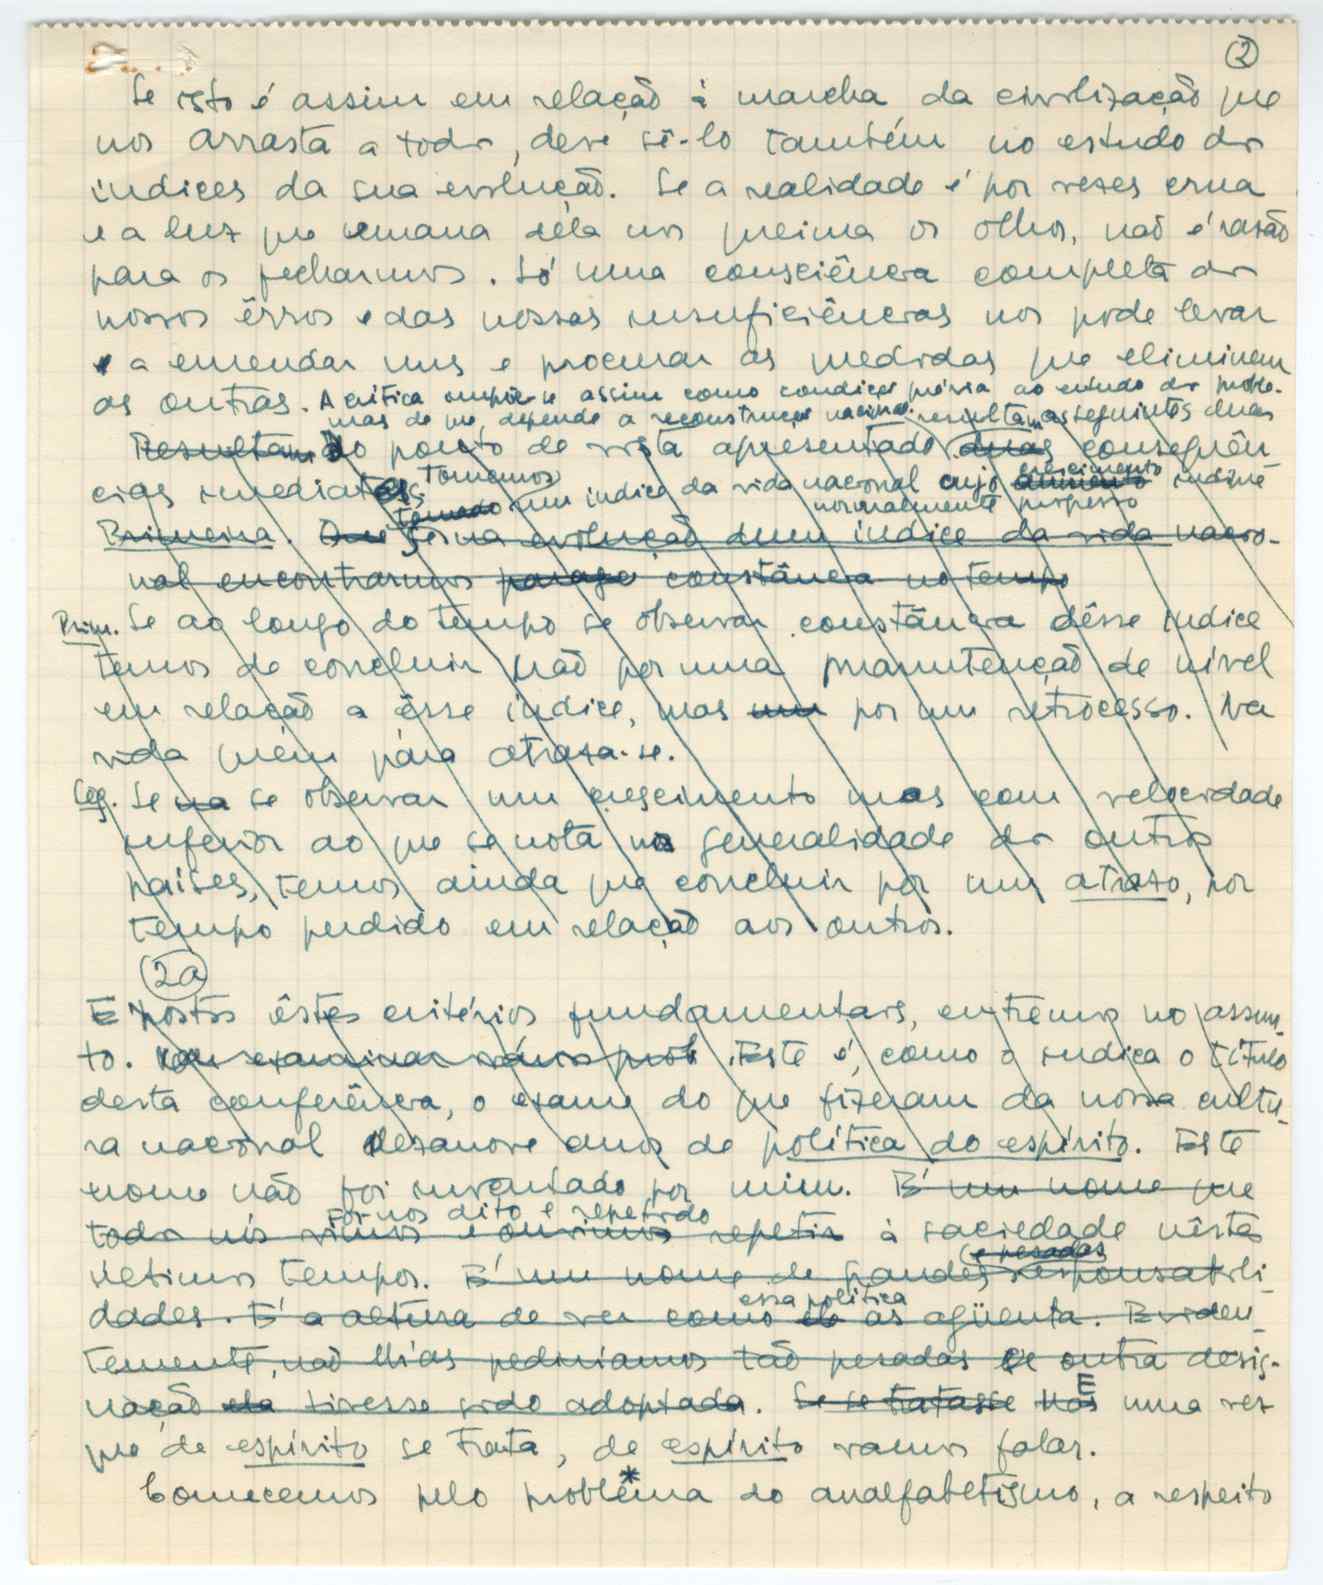 2
Se isto é assim em relação à marcha da civilização que
nos arrasta a todos, deve sê-lo também no estudo dos
índices da sua evolução. Se a realidade é por vezes crua
e a luz que emana dela nos queima os olhos, não é razão
para os fecharmos. Só uma consciência completa dos
nossos êrros e das nossas insuficiências nos pode levar
a emendar uns e procurar as medidas que eliminem
as outras. A crítica impõe-se assim como condição prévia ao estudo dos proble-
mas de que depende a reconstrução nacional. resultam as seguintes duas
Resultam do ponto de vista apresentado duas consequên
cias imediatas. Tomemos um índice da vida nacional cujo crescimento indique
tomado normalmente progresso
Primeira. Que se na evolução dum índice da vida nacio-
nal encontrarmos constância no tempo
Prim. Se ao longo do tempo se observar constância dêsse índice
temos de concluir não por uma manutenção de nível
em relação a êsse índice, mas um por um retrocesso. Na
vida quem pára atrasa-se.
Seg. Se na se observar um crescimento mas com velocidade
inferior ao que se nota na generalidade dos outros
países, temos ainda que concluir por um atraso, por
tempo perdido em relação aos outros.
2a
Expostos êstes critérios fundamentais, entremos no assun-
to. Vou examinar vários prob Este é, como o indica o título
desta conferência, o exame do que fizeram da nossa cultu-
ra nacional dezanove anos de política do espírito. Este
nome não foi inventado por mim. É um nome que
foi-nos dito e repetido
todos nós vimos e ouvimos repetir à saciedade nêstes
(e pesadas
últimos tempos. É um nome de grandes responsabili-
dades. É a altura de ver como essa política as agüenta. Eviden-
temente, não lhas pediríamos tão pesadas se outra desig-
nação ela tivesse sido adoptada. Se se tratasse Mas E uma vez
que de espírito se trata, de espírito vamos falar.
Comecemos pelo problema * do analfabetismo, a respeito